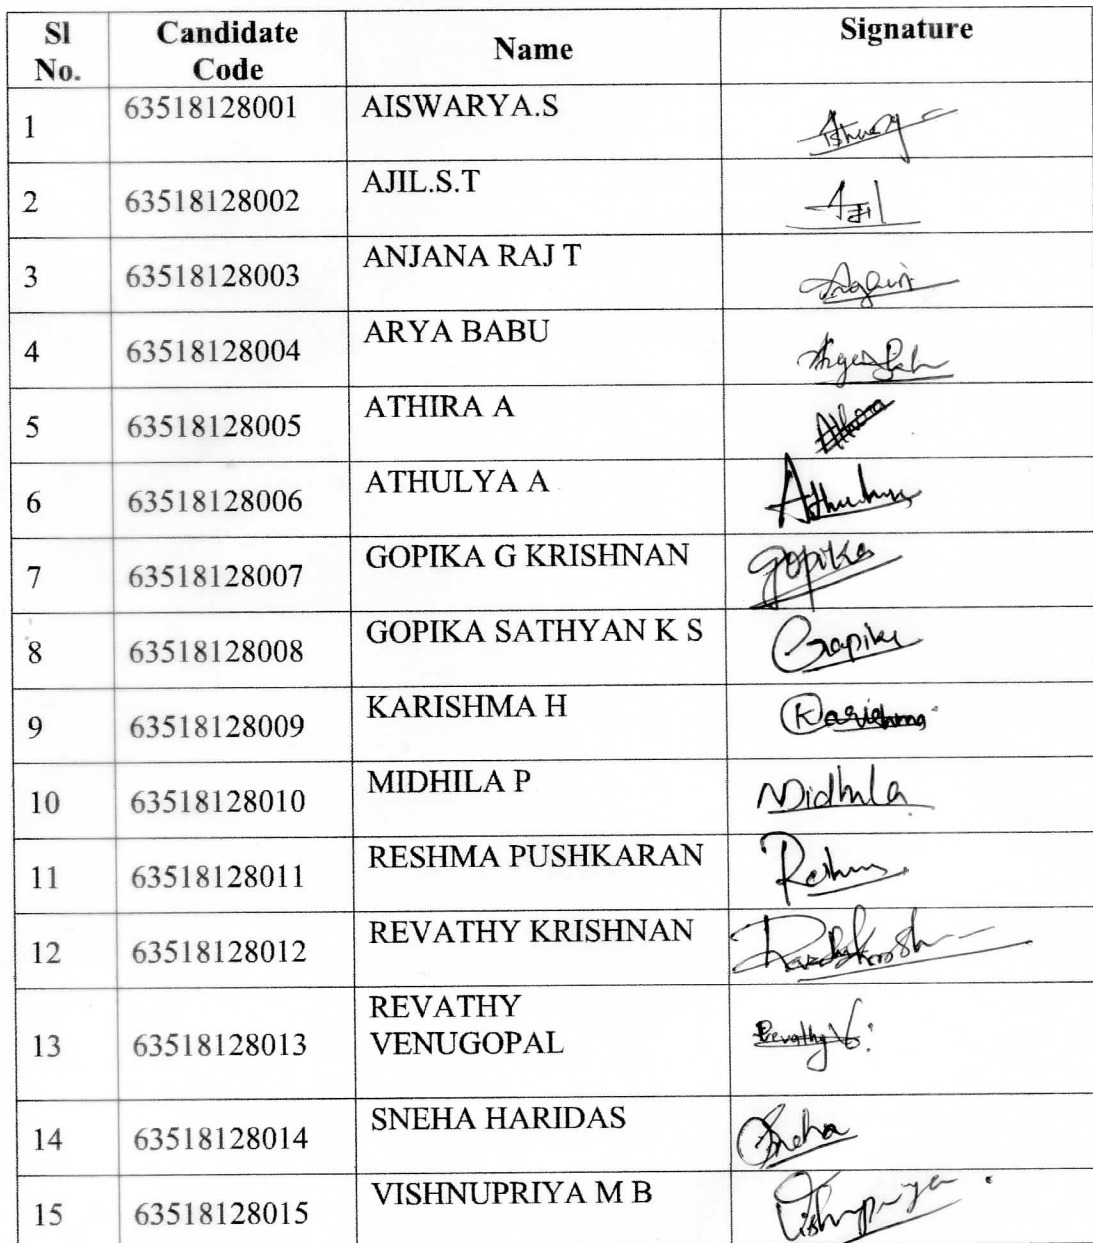 Sl No. Candidate Code Name Signature
1 63518128001 AISWARYA.S
2 63518128002 AJIL.S.T Ajil
3 63518128003 ANJANA RAJ T
4 63518128004 ARYA BABU
5 63518128005 ATHIRA A Athira
6 63518128006 ATHULYA A
7 63518128007 GOPIKA G KRISHNAN Gopika
8 63518128008 GOPIKA SATHYAN K S Gopika
9 63518128009 KARISHMA H Karishma
10 63518128010 MIDHILA P Midhila
11 63518128011 RESHMA PUSHKARAN
12 63518128012 REVATHY KRISHNAN
13 63518128013 REVATHY VENUGOPAL Revathy V.
14 63518128014 SNEHA HARIDAS Sneha
15 63518128015 VISHNUPRIYA M B Vishnupriya